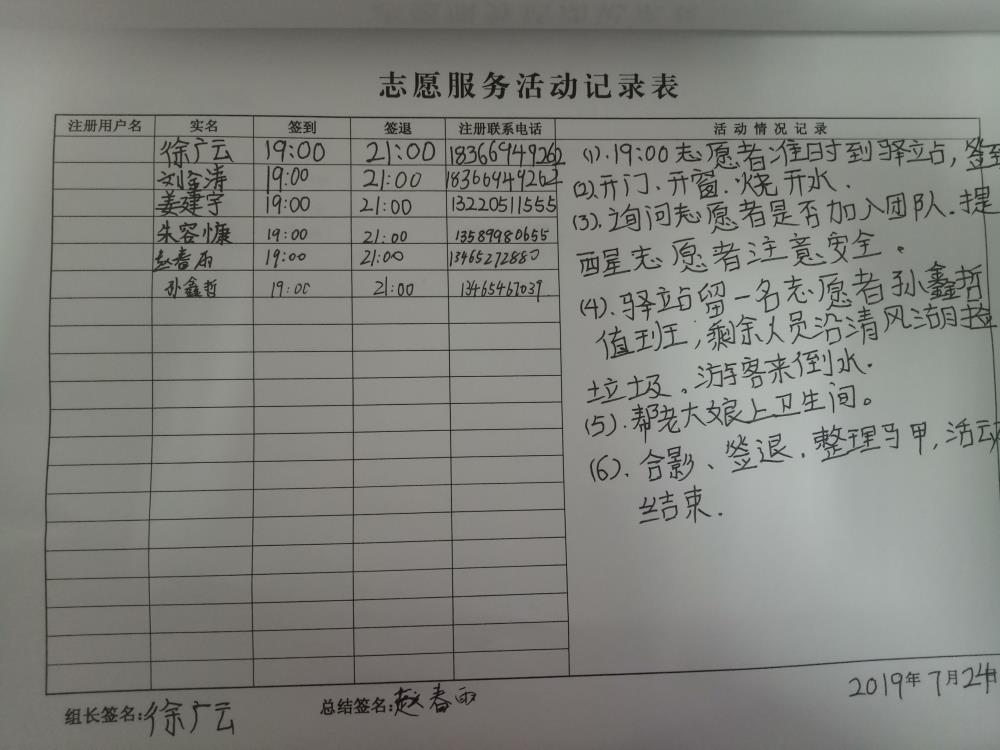 志愿服务活动记录表
注册用户名 实名 签到 签退 注册联系电话 活动情况记录
徐广云 19:00 21:00 18366949262
刘金清 19:00 21:00 18366949262
姜建宇 19:00 21:00 13220511555
朱容慷 19:00 21:00 13589980655
赵春雨 19:00 21:00 13465272880
孙鑫哲 19:00 21:00 13465467039
(1).19:00志愿者准时到驿立占,签到
(2).开门、开窗.烧开水.
(3).询问志愿者是否加入团队.提
西星志愿者注意安全。
(4).驿立占留一名志愿者孙鑫哲
值班,剩余人员沿清风湖捡
垃圾。游客来倒水.
(5).帮老大娘上卫生间。
(6).合影、签退.整理马甲,活动
结束.
组长签名:徐广云 总结签名:赵春雨 2019年7月24日